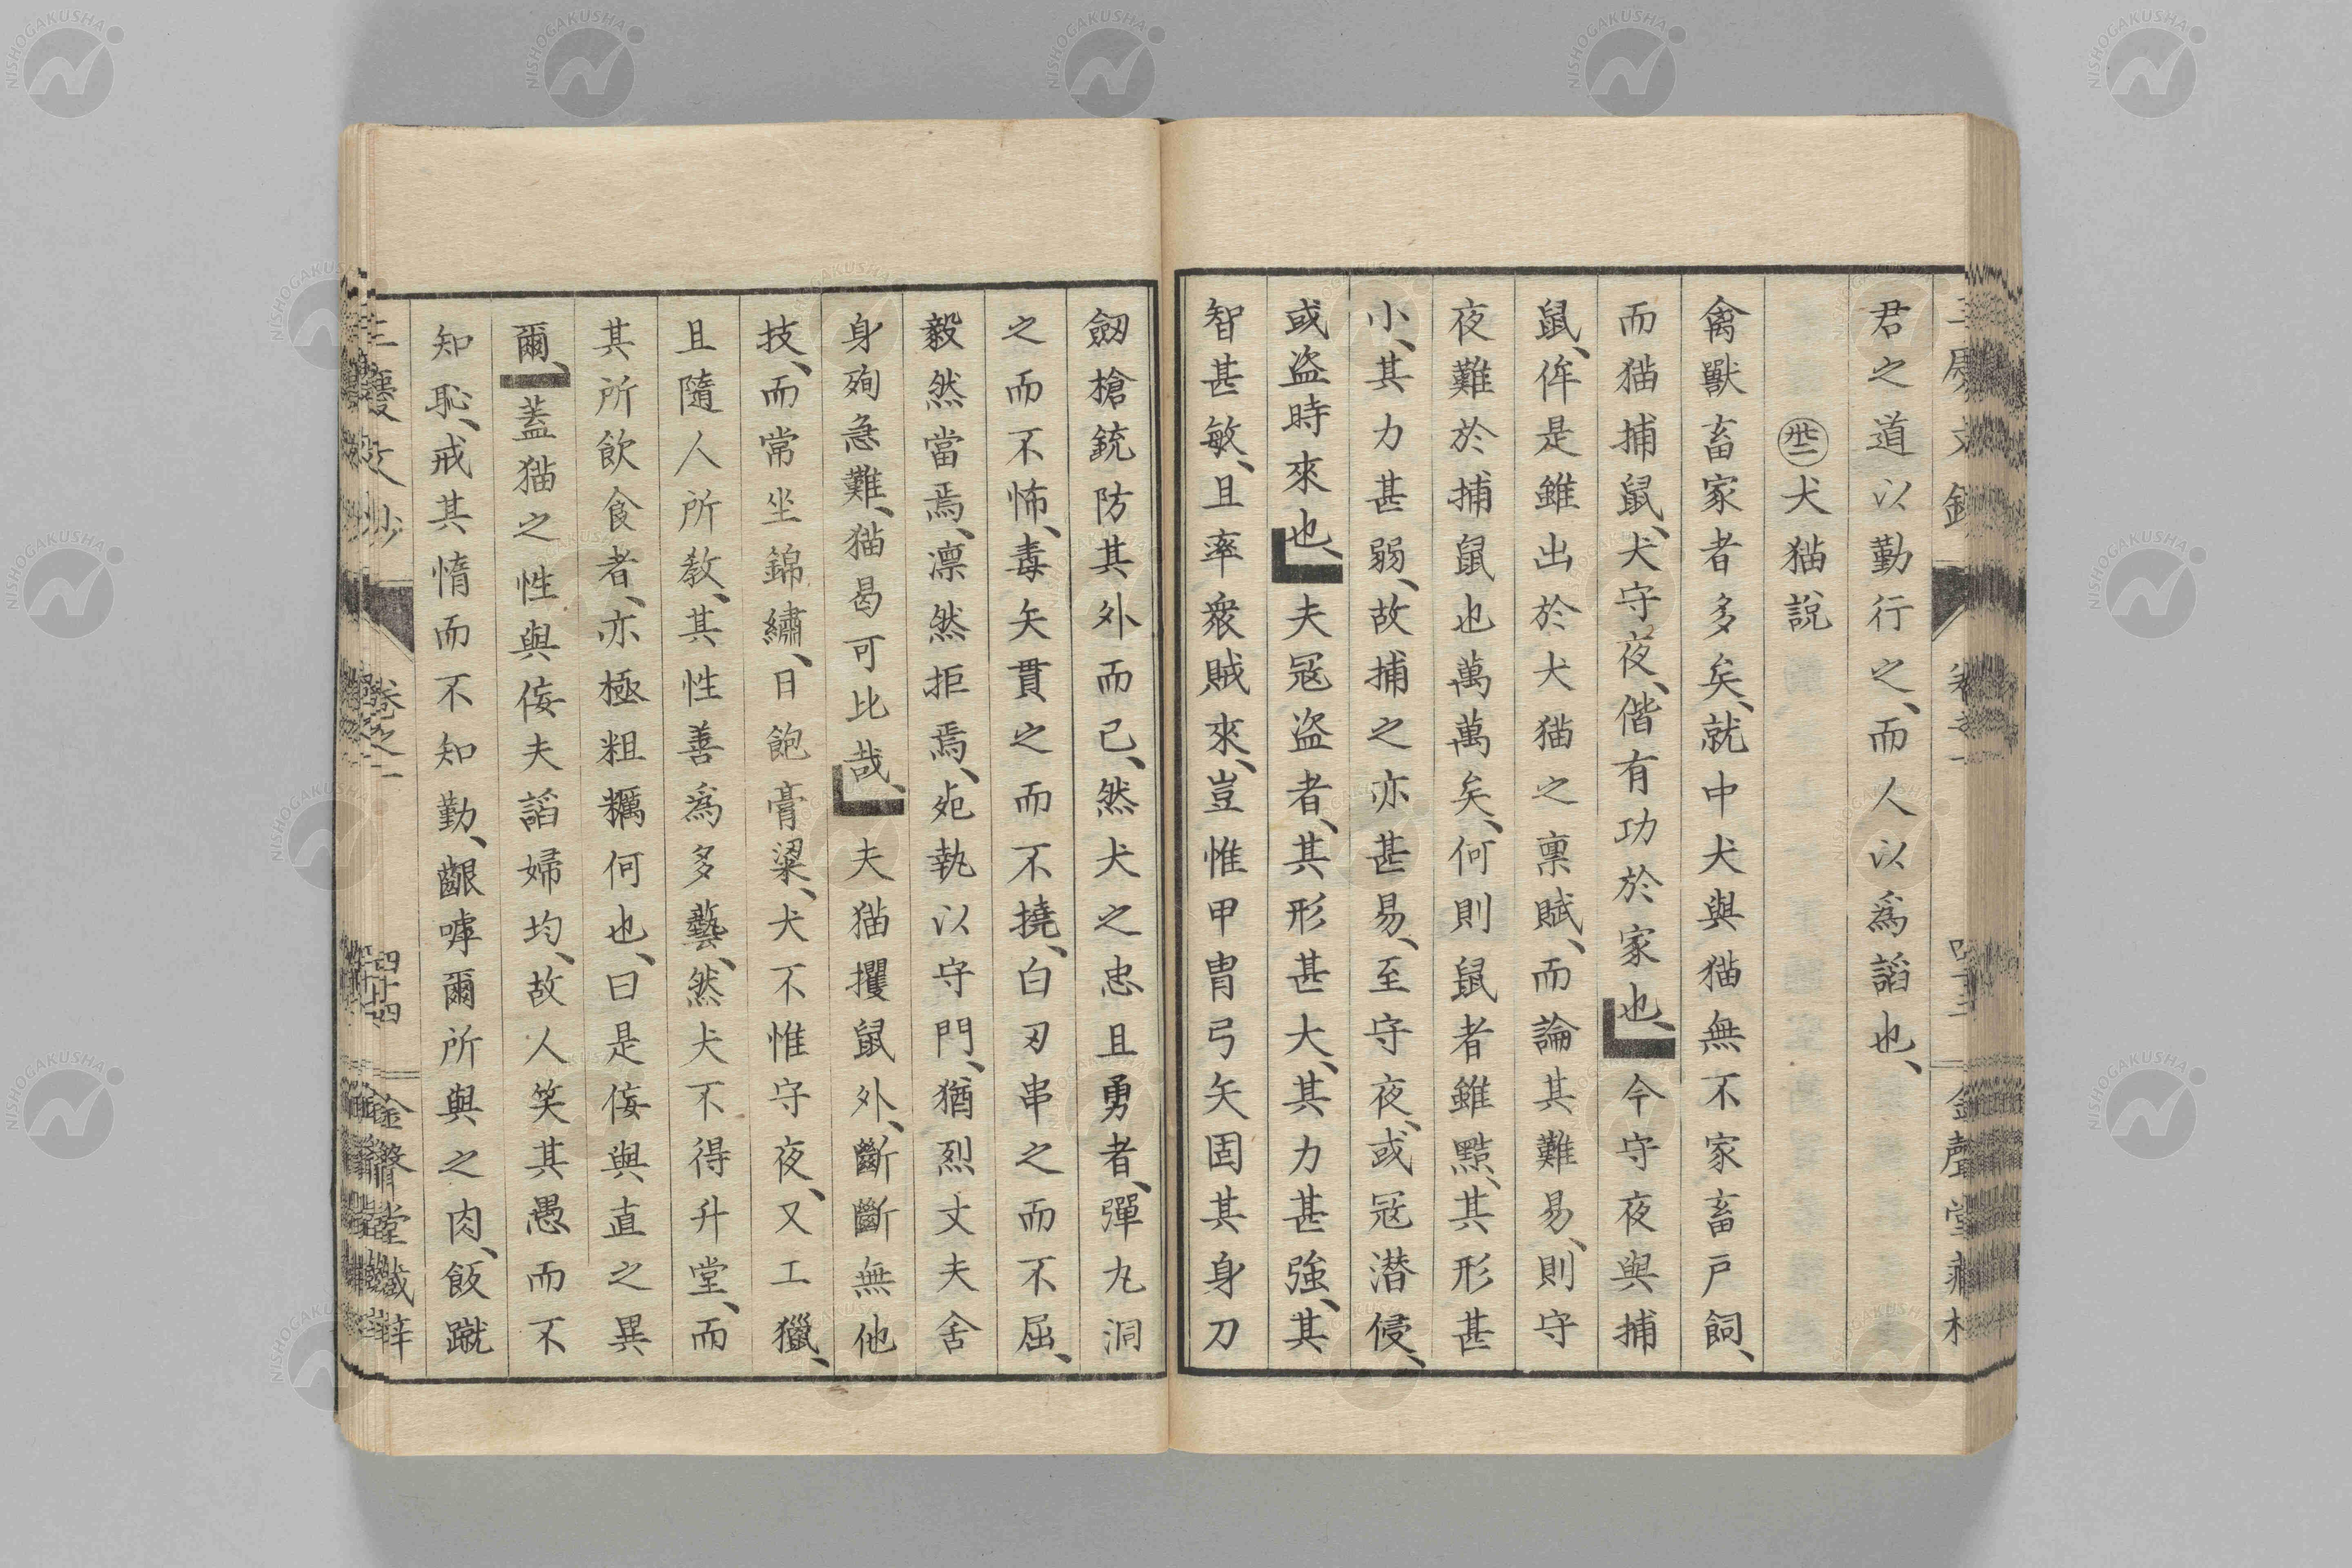 君之道以勤行之、而人以爲諂也、
㊷犬猫説
禽獸畜家者多矣、就中犬與猫無不家畜戸飼、
而猫捕鼠、犬守夜、偕有功於家也、今守夜與捕
鼠、侔是雖出於犬猫之稟賦、而論其難易、則守
夜難於捕鼠也萬萬矣、何則鼠者雖黠、其形甚
小、其力甚弱、故捕之亦甚易、至守夜、或冦潜侵、
或盗時來也、夫冦盗者、其形甚大、其力甚強、其
智甚敏、且率衆賊來、豈惟甲冑弓矢固其身刀
劒槍銃防其外而已、然犬之忠且勇者、彈丸洞
之而不怖、毒矢貫之而不撓、白刃串之而不屈、
毅然當焉、凛然拒焉、死執以守門、猶烈丈夫舍
身殉急難、猫曷可比哉、夫猫攫鼠外、斷斷無他
技、而常坐錦繡、日飽膏粱、犬不惟守夜、又工獵、
且隨人所教、其性善爲多藝、然犬不得升堂、而
其所飲食者、亦極粗糲何也、曰是侫與直之異
爾、蓋猫之性與侫夫諂婦均、故人笑其愚而不
知恥、戒其惰而不知勤、齦嘑爾所與之肉、飯蹴
卷之一
四十四
金聲堂
NISHOGAKUSHA